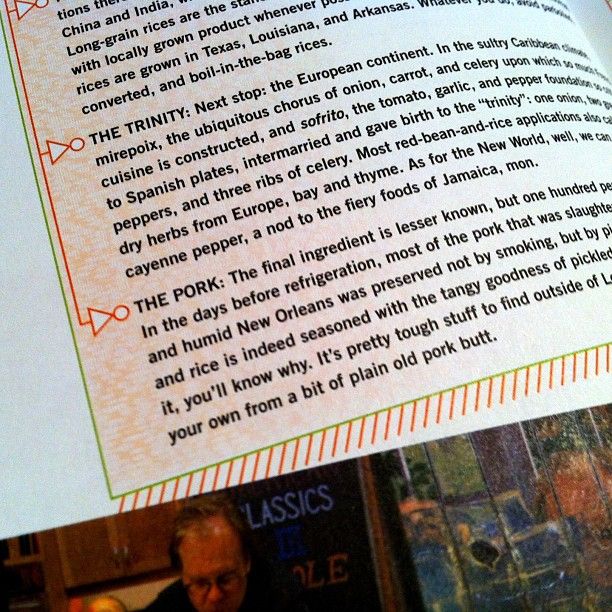 tions ther
China and India, w
Long-grain rices are the stan
with locally grown product whenever pos
rices are grown in Texas, Louisiana, and Arkansas. Whatever you do, avoid
converted, and boil-in-the-bag rices.
THE TRINITY: Next stop: the European continent. In the sultry Caribbean climate
mirepoix, the ubiquitous chorus of onion, carrot, and celery upon which so much
cuisine is constructed, and sofrito, the tomato, garlic, and pepper foundation so
to Spanish plates, intermarried and gave birth to the "trinity": one onion, two
peppers, and three ribs of celery. Most red-bean-and-rice applications also cal
dry herbs from Europe, bay and thyme. As for the New World, well, we can
cayenne pepper, a nod to the fiery foods of Jamaica, mon.
THE PORK: The final ingredient is lesser known, but one hundred pe
In the days before refrigeration, most of the pork that was slaughte
and humid New Orleans was preserved not by smoking, but by pi
and rice is indeed seasoned with the tangy goodness of pickled
it, you'll know why. It's pretty tough stuff to find outside of L
your own from a bit of plain old pork butt.
LASSICS
OLE